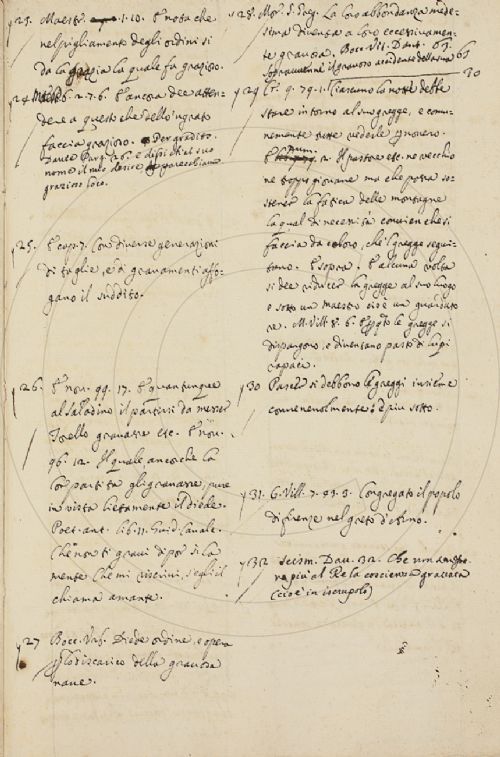 23. Maestr. 1. 10. E nota che
nel pigliamento degli ordini si
da la grazia la quale fa grazioso.
24. Maestr. 2. 7. 6. E ancora dee atten-
dere a questo che dello 'ngrato
faccia grazioso. Per gradito.
Dante Purg. 26. e dissi ch'al suo
nome il mio desire apparecchiava
grazioso loco.
25. E cap. 7. Con diverse generazioni
di taglie, e di gravamenti affo-
gano il suddito.
26. E nov. 99. 17. E quantunque
al Saladino il partirsi da messer
Torello gravasse etc. E nov.
96. 12. Il quale ancorchè la
compartita gli gravasse, pure
in vista lietamente il diede.
Poet. ant. lib. 11. Guid. Caval.
Che non ti gravi di por si la
mente
chiama amante.
27 Bocc. Diede ordine, e opera
allo discarico della gravosa
nave.
28. Mor. S. Greg. La loro abbondanza mede-
sima diventa a loro eccessivamen-
te gravosa. Bocc. Vit. Dant. 63.
Sopravvenne il gravoso accidente della sua 65
30
29 Cr. 9. 79. 1. Ciascuno la notte debbe
stare intorno al suo gregge, e comu-
nemente tutte vederle
E num. 2. Il pastore etc. ne vecchio
ne troppo giovane ma che possa so-
stener la fatica delle montagne
la qual di necessità convien che si
faccia da coloro, che 'l gregge segui-
tano. E sopra. E alcuna volta
si dee riducer la gregge al suo luogo
e sotto un maestro cioè un guardato
re. M. Vill. 8. 6. le gregge si
dispargono, e diventano pasto di lupi
rapaci.
30 Pareti si debbono le greggi insieme
convenevolmente: e più sotto.
31. G. Vill. 7. 83. 3. Congregato il popolo
di firenze nel greto d'Arno.
32 Scism. Dav. 32. Che
più al Re la coscienza gravata
(cioè in iscrupolo)